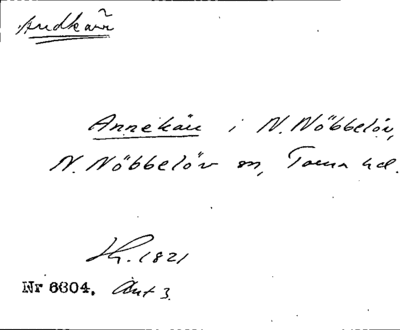 Andkärr
Annekärr i N. Nöbbelöv,
N. Nöbbelöv sn, Torna hd.
Nr 6604. Akt 3.